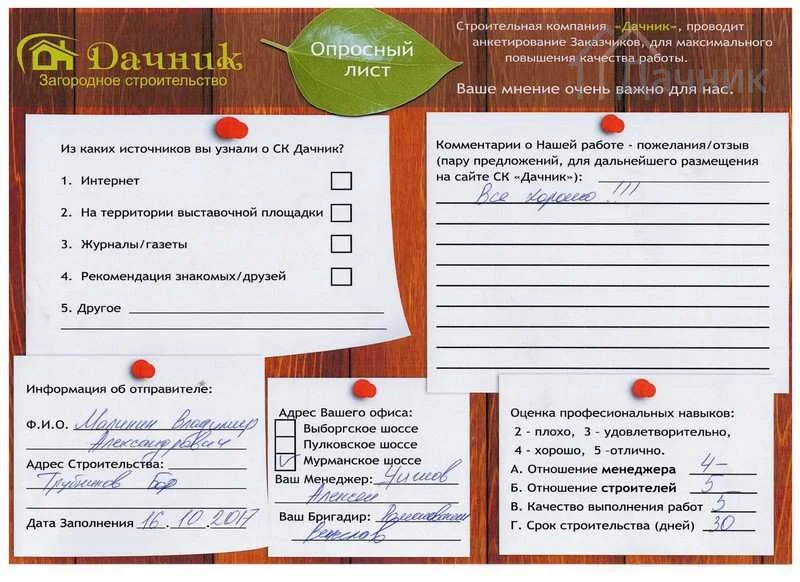 Дачник
Загородное строительство
Опросный
лист
Строительная компания «Дачник», проводит
анкетирование Заказчиков, для максимального
повышения качества работы.
Ваше мнение очень важно для нас.
Дачник
Из каких источников вы узнали о СК Дачник?
1. Интернет
2. На территории выставочной площадки
3. Журналы/газеты
4. Рекомендация знакомых/друзей
5. Другое
Комментарии о Нашей работе - пожелания/отзыв
(пару предложений, для дальнейшего размещения
на сайте СК «Дачник»):
Все хорошо !!!
Информация об отправителе:
Ф.И.О. Малинин Владимир
Александрович
Адрес Строительства:
Трубников Бор
Дата Заполнения 16.10.2017
Адрес Вашего офиса:
Выборгское шоссе
Пулковское шоссе
Мурманское шоссе
Ваш Менеджер:
Алексей
Ваш Бригадир:
Вячеслав
Оценка професиональных навыков:
2 - плохо, 3 - удовлетворительно,
4 - хорошо, 5 -отлично.
А. Отношение менеджера 4-
Б. Отношение строителей 5
В. Качество выполнения работ 5
Г. Срок строительства (дней) 30